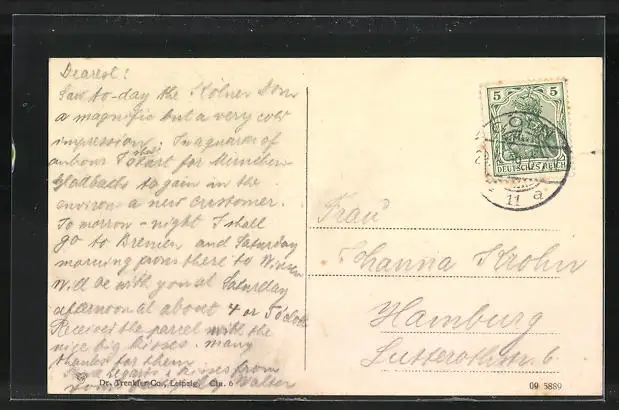 Dearest!
Saw to-day the Kölner Dom
a magnific but a very cold
impression. In a quarter of
an hour I shall start for München-
Gladbach to gain in the
environs a new customer.
To morrow-night I shall
go to Bremen and Saturday
morning from there to
Will be with you at Saturday
afternoon at about 4 or 5 o'clock
Received the parcel with the
nice big kisses. many
thanks for them
regards & kisses from
your Walter
Dr. Trenkler Co., Leipzig. Cln. 6
5 5
DEUTSCHES REICH
CÖLN
11 a
Frau
Johanna Krohn
Hamburg
6.
09 5889